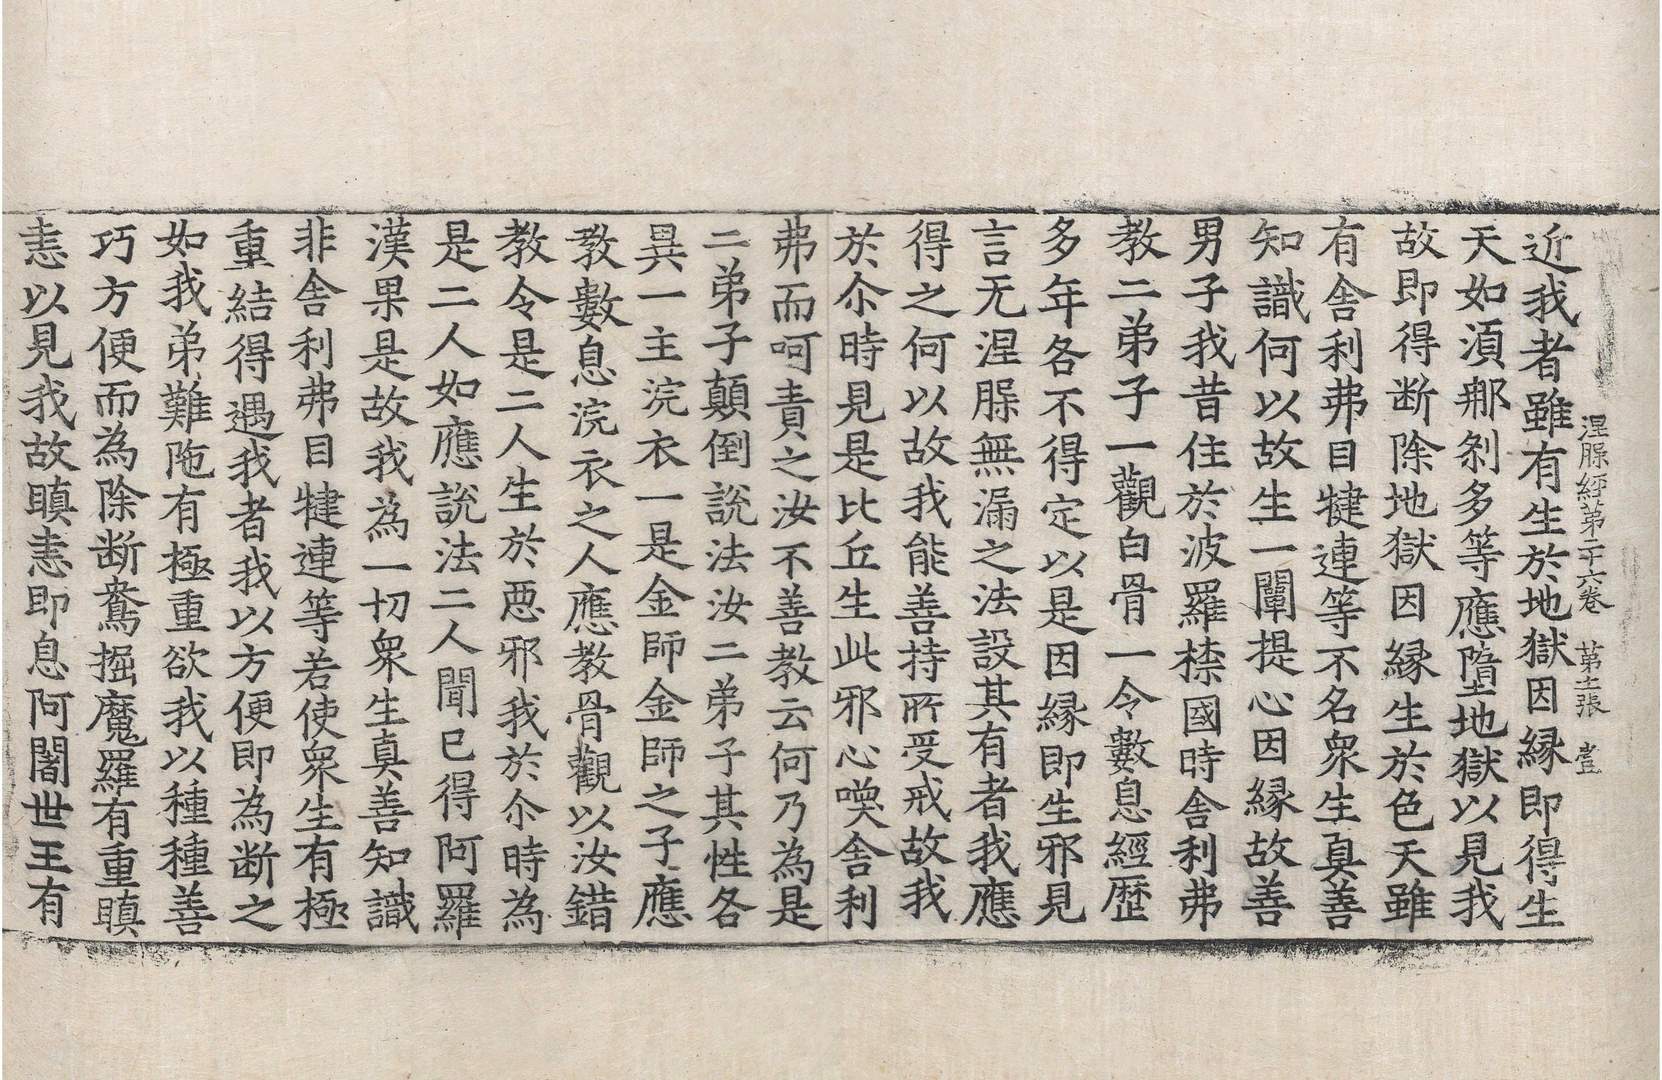 涅槃經第二十六卷 第十一張 壹
近我者雖有生於地獄因縁即得生
天如湏那刹多等應墮地獄以見我
故即得断除地獄因縁生於色天雖
有舍利弗目犍連等不名衆生真善
知識何以故生一闡提心因縁故善
男子我昔住於波羅㮈國時舍利弗
教二弟子一觀白骨一令數息經歷
多年各不得定以是因縁即生邪見
言无涅槃無漏之法設其有者我應
得之何以故我能善持所受戒故我
於尒時見是比丘生此邪心喚舍利
弗而呵責之汝不善教云何乃為是
二弟子顛倒說法汝二弟子其性各
異一主浣衣一是金師金師之子應
教數息浣衣之人應教骨觀以汝錯
教令是二人生於惡邪我於尒時為
是二人如應說法二人聞已得阿羅
漢果是故我為一切衆生真善知識
非舍利弗目犍連等若使衆生有極
重結得遇我者我以方便即為断之
如我弟難陁有極重欲我以種種善
巧方便而為除断鴦掘魔羅有重瞋
恚以見我故瞋恚即息阿闍世王有